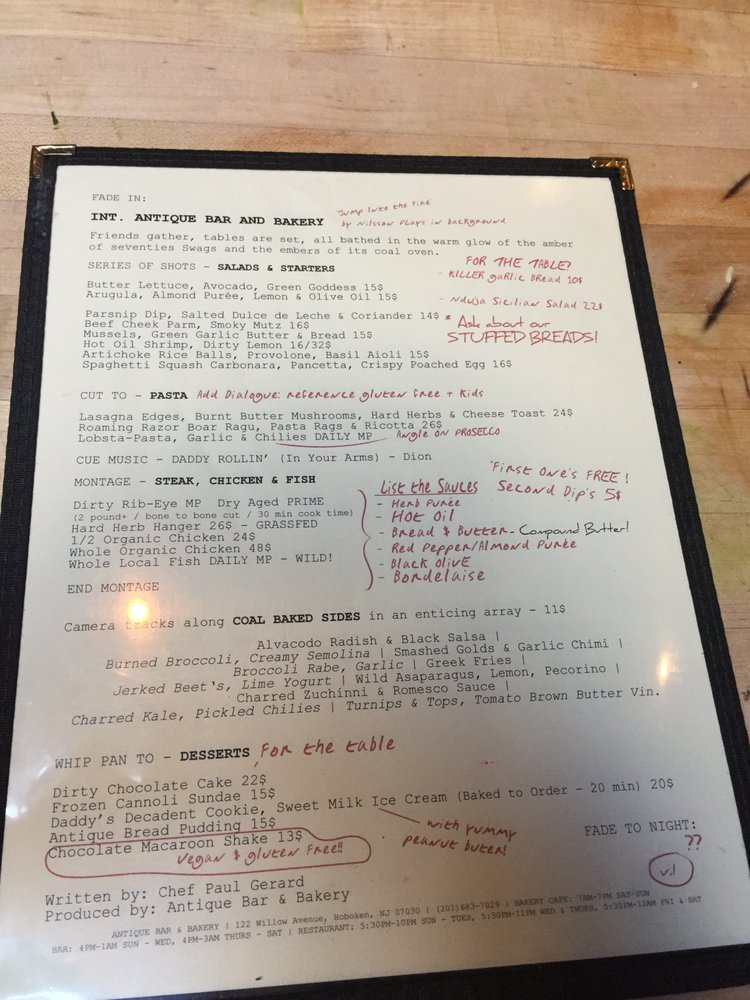 FADE IN:
INT. ANTIQUE BAR AND BAKERY
Jump Into the Fire
by Nilsson Plays in background
Friends gather, tables are set, all bathed in the warm glow of the amber
of seventies Swags and the embers of its coal oven.
SERIES OF SHOTS - SALADS & STARTERS
FOR THE TABLE?
- KILLER garlic Bread 10$
Butter Lettuce, Avocado, Green Goddess 15$
Arugula, Almond Purée, Lemon & Olive Oil 15$
- Nduja Sicilian Salad 22$
Parsnip Dip, Salted Dulce de Leche & Coriander 14$
Beef Cheek Parm, Smoky Mutz 16$
Mussels, Green Garlic Butter & Bread 15$
Hot Oil Shrimp, Dirty Lemon 16/32$
Artichoke Rice Balls, Provolone, Basil Aioli 15$
Spaghetti Squash Carbonara, Pancetta, Crispy Poached Egg 16$
* Ask about our
STUFFED BREADS!
CUT TO - PASTA Add Dialogue: reference gluten free + kids
Lasagna Edges, Burnt Butter Mushrooms, Hard Herbs & Cheese Toast 24$
Roaming Razor Boar Ragu, Pasta Rags & Ricotta 26$
Lobsta-Pasta, Garlic & Chilies DAILY MP Angle on PROSECCO
CUE MUSIC - DADDY ROLLIN' (In Your Arms) - Dion
MONTAGE - STEAK, CHICKEN & FISH
Dirty Rib-Eye MP Dry Aged PRIME
(2 pound+ / bone to bone cut / 30 min cook time)
Hard Herb Hanger 26$ - GRASSFED
1/2 Organic Chicken 24$
Whole Organic Chicken 48$
Whole Local Fish DAILY MP - WILD!
List the Sauces
"First One's FREE!
Second Dip's 5$
- Herb Purée
- HOT Oil
- Bread & Butter - Compound Butter!
- Red Pepper/Almond Purée
- Black Olive
- Bordelaise
END MONTAGE
Camera tracks along COAL BAKED SIDES in an enticing array - 11$
Alvacodo Radish & Black Salsa |
Burned Broccoli, Creamy Semolina | Smashed Golds & Garlic Chimi |
Broccoli Rabe, Garlic | Greek Fries |
Jerked Beet's, Lime Yogurt | Wild Asaparagus, Lemon, Pecorino |
Charred Zuchinni & Romesco Sauce |
Charred Kale, Pickled Chilies | Turnips & Tops, Tomato Brown Butter Vin.
WHIP PAN TO - DESSERTS For the table
Dirty Chocolate Cake 22$
Frozen Cannoli Sundae 15$
Daddy's Decadent Cookie, Sweet Milk Ice Cream (Baked to Order - 20 min) 20$
Antique Bread Pudding 15$
Chocolate Macaroon Shake 13$
vegan & gluten free!!
with yummy
peanut buter!
FADE TO NIGHT:
??
v.1
Written by: Chef Paul Gerard
Produced by: Antique Bar & Bakery
ANTIQUE BAR & BAKERY | 122 Willow Avenue, Hoboken, NJ 07030 | (201)683-7029 | BAKERY CAFE: 7AM-7PM SAT-SUN
BAR: 4PM-1AM SUN - WED, 4PM-3AM THURS - SAT | RESTAURANT: 5:30PM-10PM SUN - TUES, 5:30PM-11PM WED & THURS, 5:30PM-12AM FRI & SAT